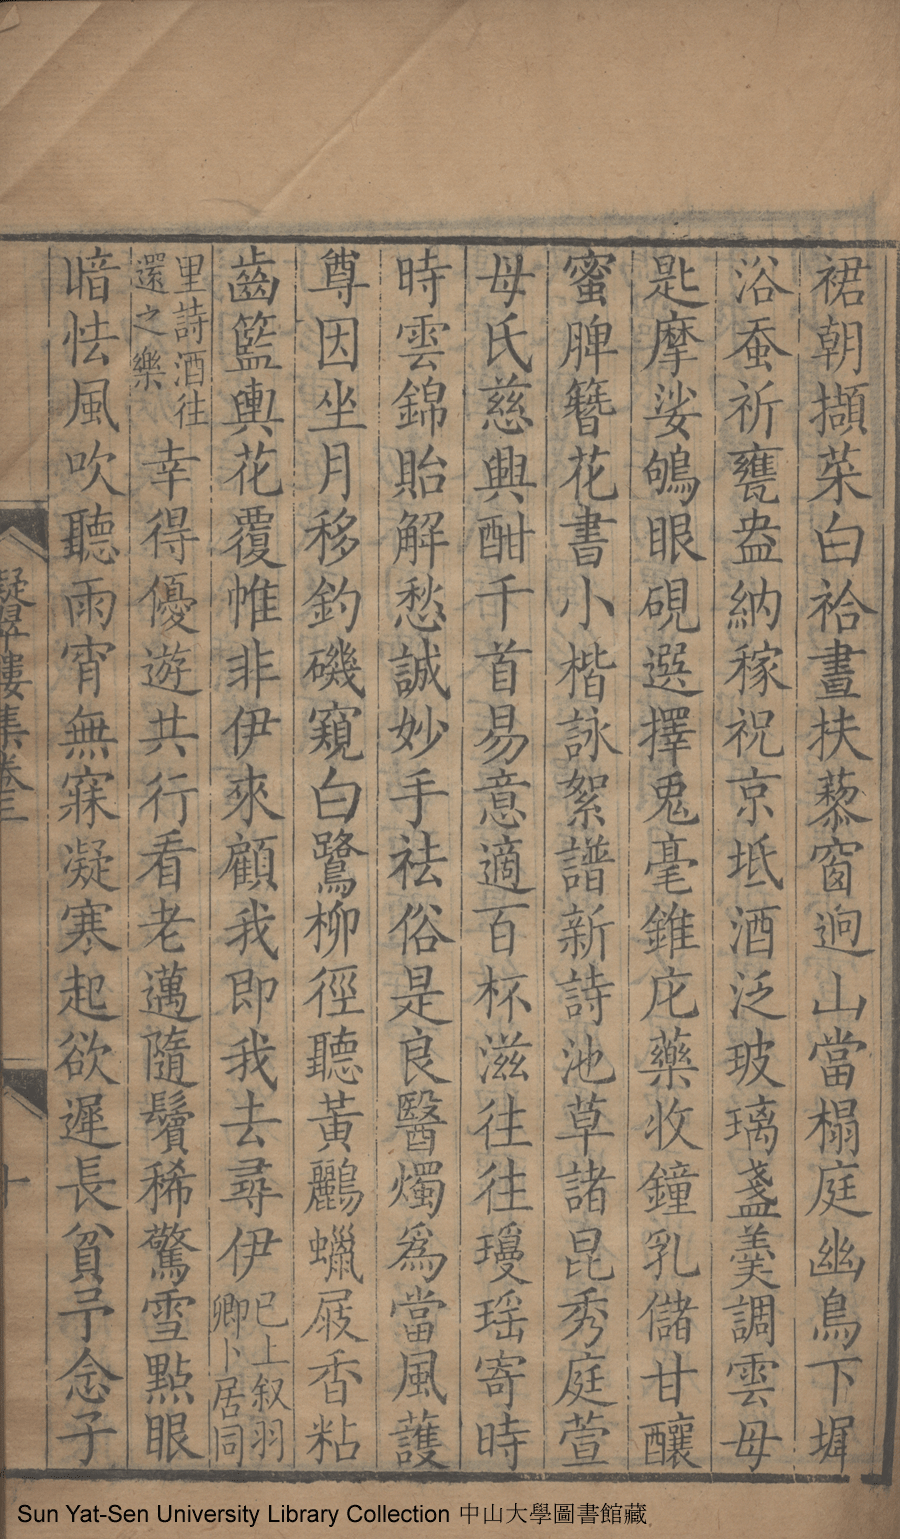 裙朝擷菜白袷晝扶藜窗迥山當榻庭幽鳥下墀
浴蚕祈甕盎納稼祝京坻酒泛玻璃盞羹調雲母
匙摩娑鴝眼硯選擇兎毫錐庀藥收鐘乳儲甘釀
蜜脾簪花書小楷詠絮譜新詩池草諸昆秀庭萱
母氏慈興酣千首易意適百杯滋往往瓊瑶寄時
時雲錦貽解愁誠妙手祛俗是良醫燭為當風護
尊因坐月移釣磯窺白鷺柳徑聽黃鸝蠟屐香粘
齒籃輿花覆帷非伊來顧我即我去尋伊已上叙羽卿卜居同
里詩酒往還之樂幸得優遊共行看老邁隨鬢稀驚雪點眼
暗怯風吹聽雨宵無寐凝寒起欲遲長貧予念子
凝翠樓集卷三
十
Sun Yat-Sen University Library Collection 中山大學圖書館藏